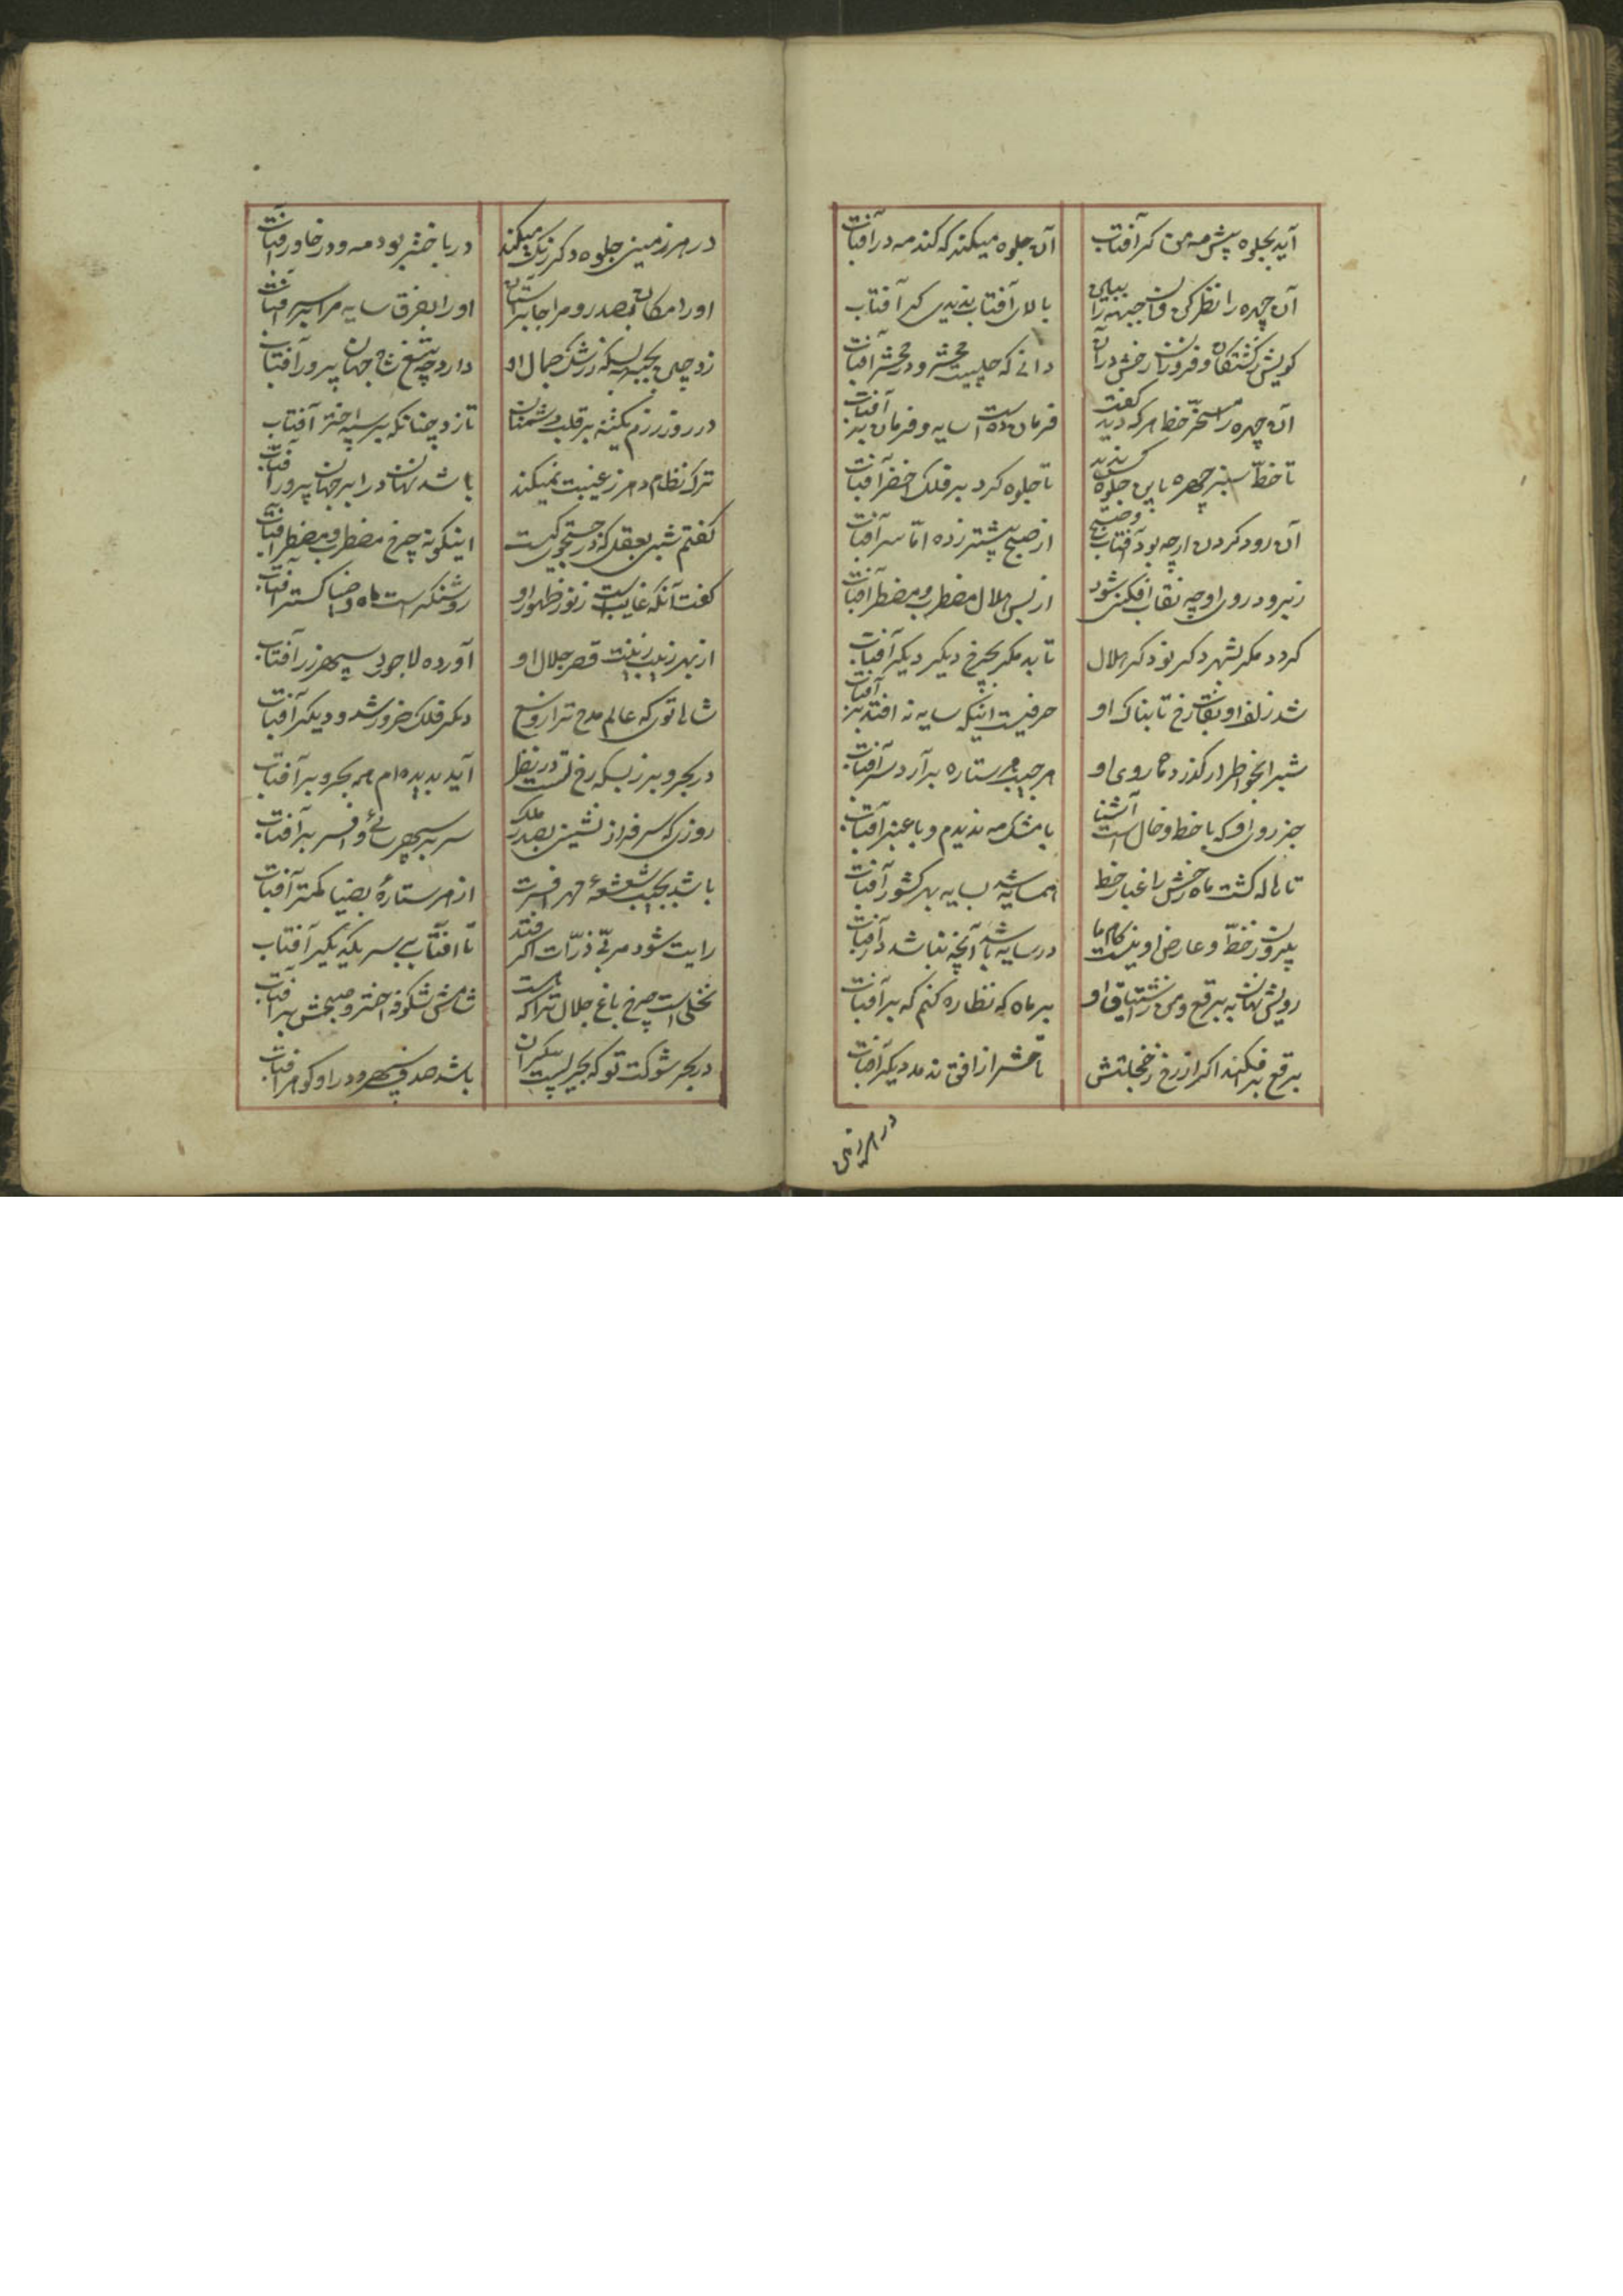 آید بجلوه پیش مه من گر آفتاب آن جلوه میکند که کند مه در آفتاب
آن چهره را نظر کن و آن جبهه را ببین بالای آفتاب ندیدی گر آفتاب
کویش ز کشتگان و فروزان رخش در آن دانی که چیست محشر و در محشر آفتاب
آن چهره را مسخر خط هر که دید گفت فرمان ده است سایه و فرمان بر آفتاب
تا خط سبز چهره باین جلوه کس ندید تا جلوه کرد بر فلک اخضر آفتاب
آن رود کردن ارچه بود آفتاب و صبح از صبح پیشتر زده اما سر آفتاب
زیر و در روی او چه نقاب افکن شود از بس هلال مضطرب و مضطر آفتاب
گردد مگر بشهر دگر نو دگر هلال تابد مگر بچرخ دیگر دیگر آفتاب
شد زلف او نقاب رخ تابناک او حرفیست اینکه سایه نه افتد بر آفتاب
شبها بخواطر ار گذرد ماه روی او هر جیب هر ستاره برآرد سر آفتاب
جز روی او که با خط و خال است آشنا با مشک مه ندیدم و با عنبر آفتاب
تا هاله گشت ماه رخش را غبار خط همسایه شد بسایه بهر کشور آفتاب
بیرون ز خط و عارض او نیست کام ما در سایه باشد آنچه نباشد در آفتاب
رویش نهان به برقع و من ز اشتیاق او بر ماه که نظاره کنم که بر آفتاب
برقع بر افکند اگر از رخ ز خجلتش تا حشر از افق ندمد دیگر آفتاب
در هر زمین
در هر زمین جلوه دگر رنگ میکند در باختر بود مه و در خاور آفتاب
او را مکان بصدر و مرا جا بر آستان او را بفرق سایه مرا بر سر آفتاب
زد چاک جیب بسکه ز رشک جمال او دارد چه تیغ شاه جهان پرور آفتاب
در روز رزم یکتنه بر قلب دشمنان تازد چنانکه بر سپه اختر آفتاب
ترک نظام دهر ز غیبت نمیکند باشد نهان در ابر جهان پرور آفتاب
گفتم شبی بعقل که در جستجوی کیست اینگونه چرخ مضطرب و مضطر آفتاب
گفت آنکه غایب است ز نور ظهور او روشنگر است ماه و ضیا گستر آفتاب
از بهر زیب و زینت قصر جلال او آورده لاجورد سپهر زر آفتاب
شاها توئی که عالم مدح ترا رفیع دیگر فلک ضرور شد و دیگر آفتاب
در بحر و بر ز بسکه رخ تست در نظر آید بدیده ام همه بحر و بر آفتاب
روزی که سرفراز نشینی بصدر ملک سر بر سپهر سائی و افسر بر آفتاب
باشد بجیب شعشعهٔ مهر افسرت از هر ستارهٔ بضیا کمتر آفتاب
رایت شود مربی ذرات اگر فتد تا افتابی بسر یکه یکیر آفتاب
نخلی است چرخ باغ جلال ترا که هست شامش شکوفه اختر و صبحش بر آفتاب
در بحر شوکت تو که بحریست بیکران باشد صدف سپهر و در او گوهر آفتاب